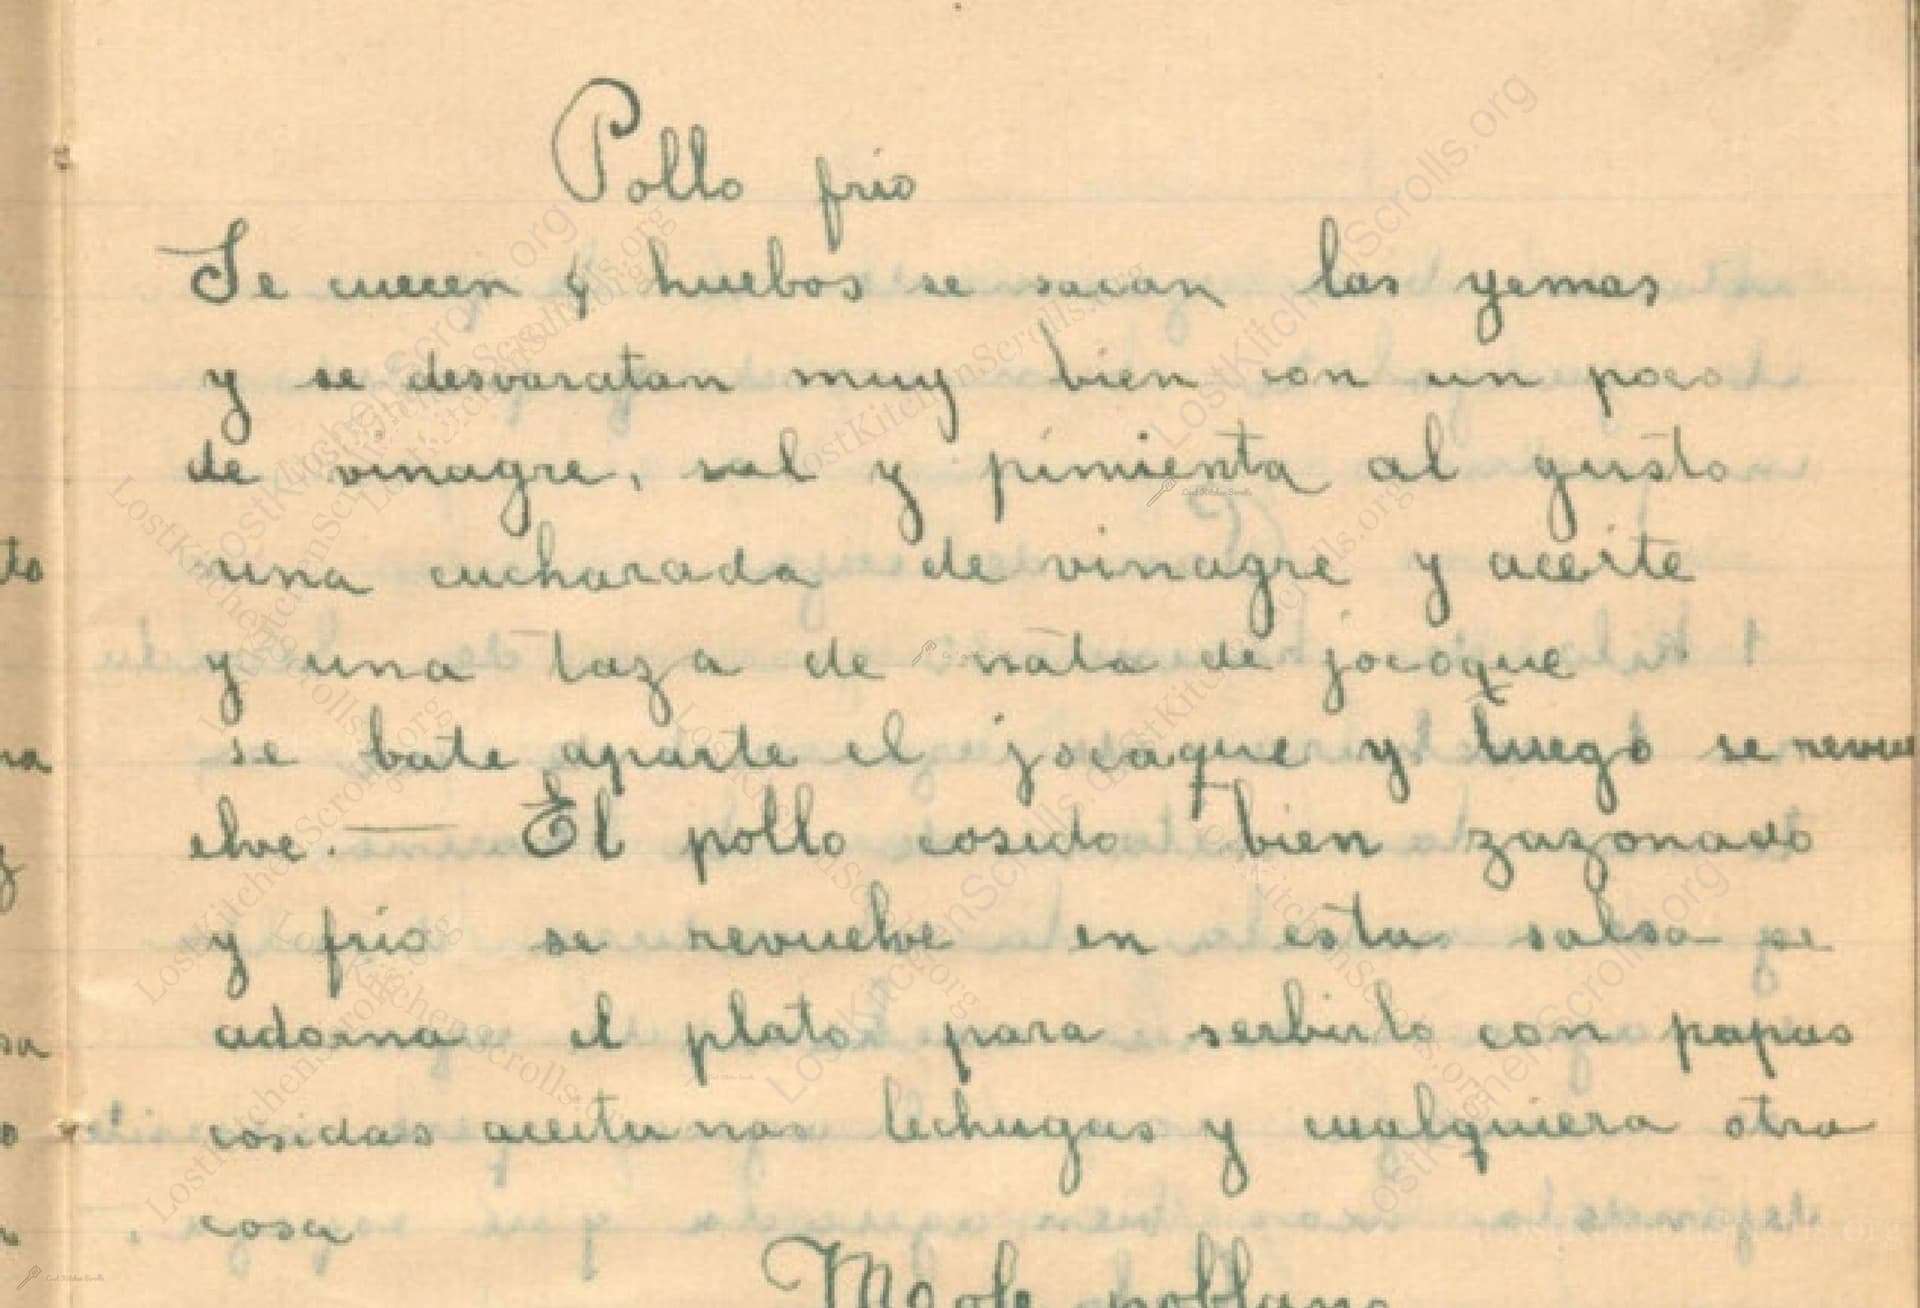 Pollo frio
Se cuecen huebos se sacan las yemas
y se desvaratan muy bien con un poco
de vinagre, sal y pimienta al gusto
una cucharada de vinagre y aceite
y una taza de nata de jocoque
se bate aparte el jocaque y luego se revu
elve. — El pollo cosido bien zazonado
y frio se revuelve en esta salsa se
adorna el plato para serbirlo con papas
cosidas aceitunas lechugas y cualquiera otra
cosa
Mole poblano